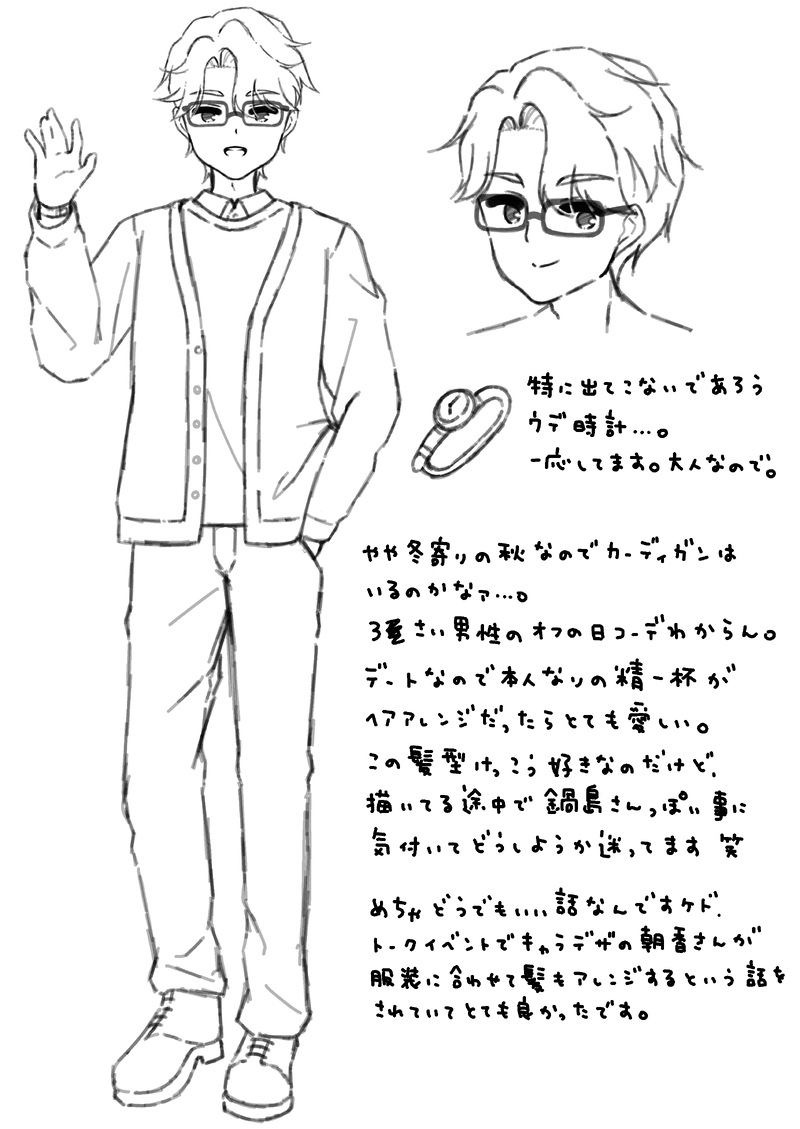 特に出てこないであろう
ウデ時計…。
一応してます。大人なので。
やや冬寄りの秋なのでカーディガンは
いるのかなァ…。
33歳さい男性のオフの日コーデわからん。
デートなので本人なりの精一杯が
ヘアアレンジだったらとても愛しい。
この髪型けっこう好きなのだけど、
描いてる途中で鍋島さんっぽい事に
気付いてどうしようか迷ってます 笑
めちゃどうでもいい話なんですケド、
トークイベントでキャラデザの朝香さんが
服装に合わせて髪もアレンジするという話を
されていてとても良かったです。